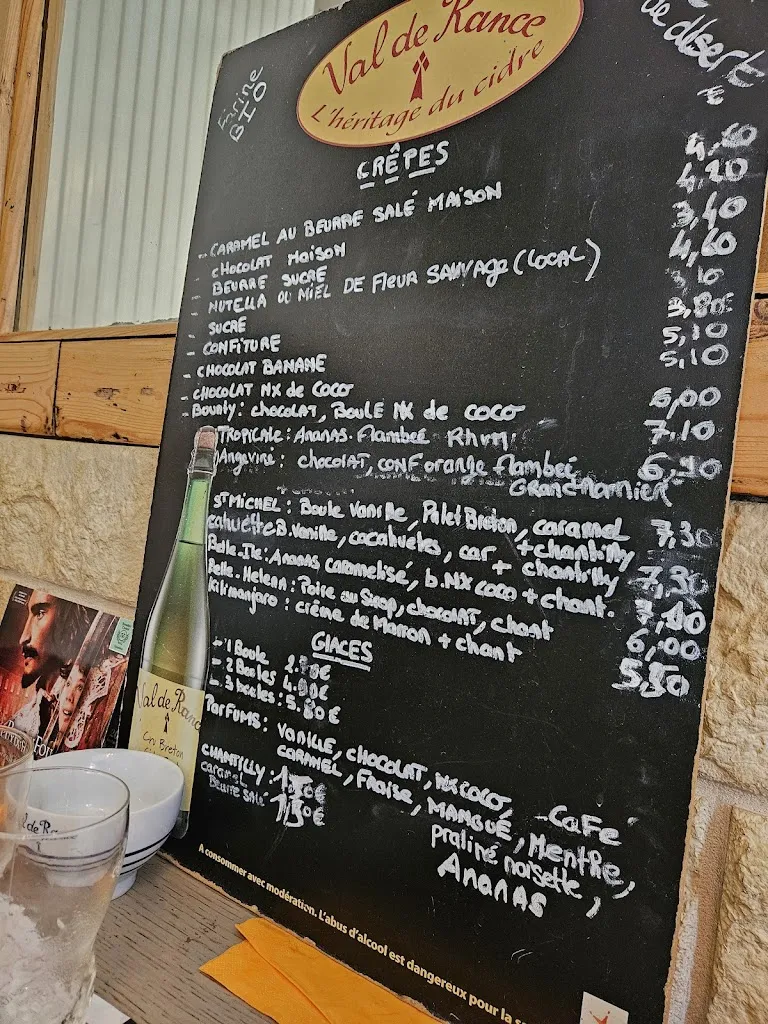 Farine
BIO
Val de Rance
L'héritage du cidre
de désert
€
CRÊPES
- CARAMEL AU BEURRE SALÉ MAISON 4,60
- CHOCOLAT MAISON 4,20
- BEURRE SUCRE 3,40
- NUTELLA OU MIEL DE FLEUR SAUVAGE (LOCAL) 4,60
- SUCRE 3,10
- CONFITURE 3,80
- CHOCOLAT BANANE 5,10
- CHOCOLAT NX de COCO 5,10
- BOUNTY: CHOCOLAT, BOULE NX de COCO 6,00
TROPICALE: Ananas. Flambée Rhum 7,10
Angevine: chocolat, CONF orange flambée
GRAND MARNIER
ST MICHEL: Boule Vanille, Palet Breton, caramel 7,30
+ chantilly
cahuette B. Vanille, cacahuètes, car + chantilly 7,30
Belle-Ile: Ananas caramélisé, b. NX COCO + chant.
Belle-Helenn: Poire au Sirop, chocolat, chant 6,00
Kilimanjaro: crème de Marron + chant 5,50
GLACES
- 1 Boule
- 2 Boules
- 3 boules:
PARFUMS: VANILLE, CHOCOLAT, NX COCO, - CAFE
CARAMEL, Fraise, MANGUE, Menthe,
praliné noisette,
ANANAS
CHANTILLY:
caramel
Beurre salé
Val de Rance
Cru Breton
A consommer avec modération. L'abus d'alcool est dangereux pour la